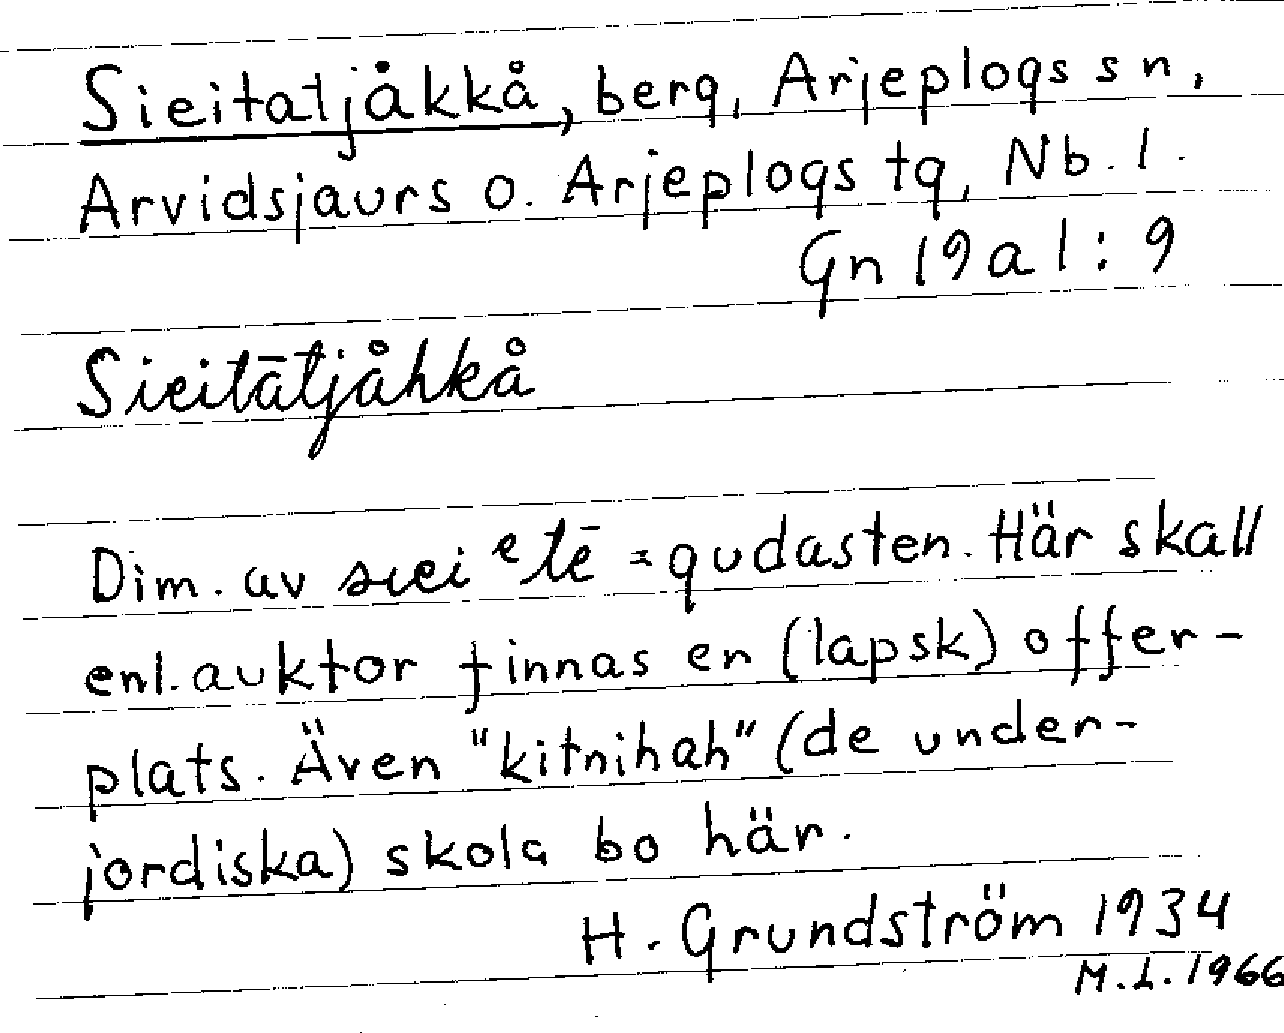 Sieitatjåkkå, berg, Arjeplogs sn,
Arvidsjaurs o. Arjeplogs tg, Nb. l.
Gn 19 a 1 : 9
Sieitātjåhkå
Dim. av siei ᵉtē = gudasten. Här skall
enl. auktor finnas en (lapsk) offer-
plats. Även "kitnihah" (de under-
jordiska) skola bo här.
H. Grundström 1934
M.L. 1966